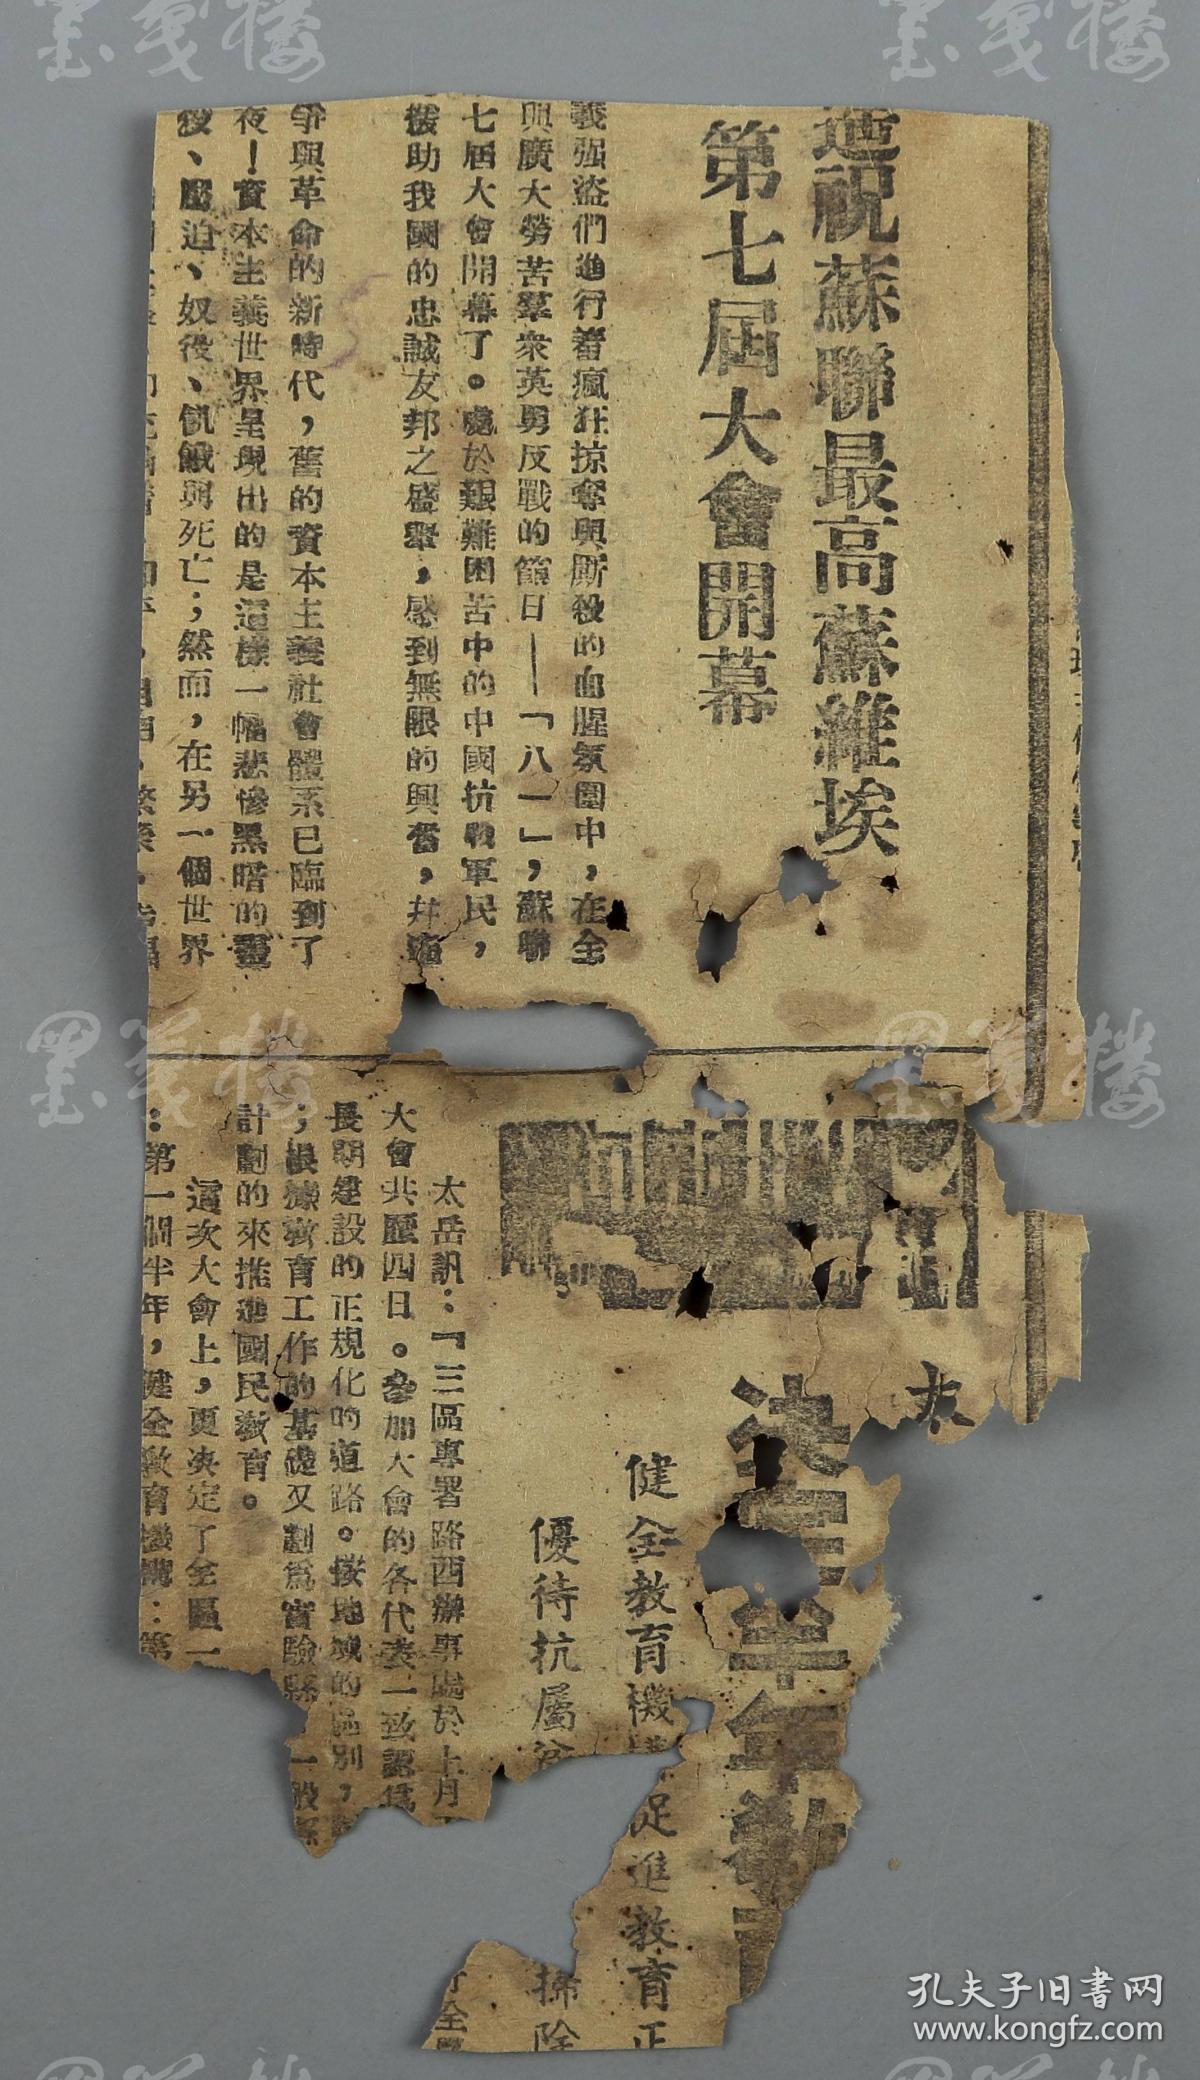 遥祝蘇聯最高蘇維埃
第七屆大會開幕
義强盗們進行着瘋狂掠奪與厮殺的血腥氛圍中，在全
與廣大勞苦羣衆英勇反戰的節日——「八一」，蘇聯
七屆大會開幕了。處於艱難困苦中的中國抗戰軍民，
援助我國的忠誠友邦之盛舉，感到無限的興奮，并遥
爭與革命的新時代，舊的資本主義社會體系已臨到了
夜！資本主義世界呈現出的是這樣一幅悲慘黑暗的畫
役、壓迫、奴役、飢餓與死亡；然而，在另一個世界
太
決定半年教
健全教育機 促進教育正
優待抗屬 掃除
太岳訊：『三區專署路西辦事處於上月
大會共歷四日。參加大會的各代表一致認爲
長期建設的正規化的道路。按地域的區別，
；根據教育工作的基礎又劃爲實驗縣 一般
計劃的來推進國民教育。
這次大會上，更決定了全區一
：第一個半年，健全教育機構：第
行全
孔夫子旧書网
www.kongfz.com
墨笺楼
墨笺楼
墨笺楼
墨笺楼